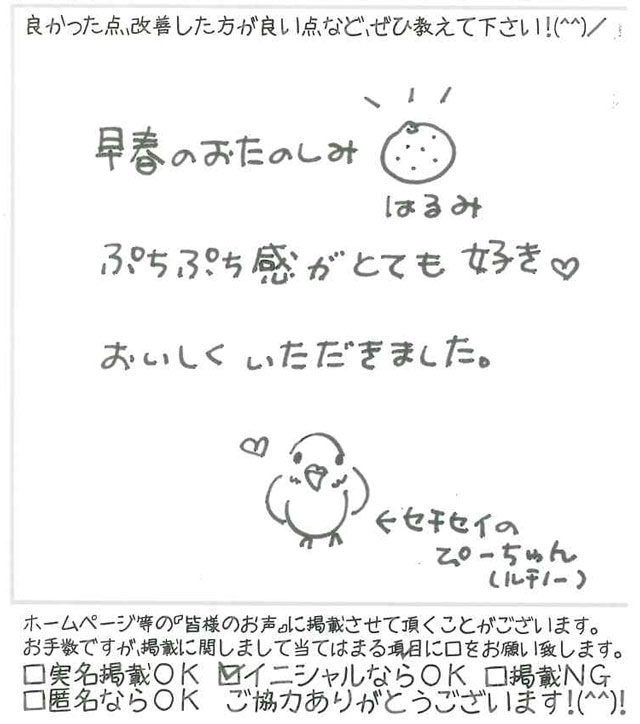 良かった点、改善した方が良い点など、ぜひ教えて下さい!(^^)/
早春のおたのしみ
はるみ
ぷちぷち感がとても好き♡
おいしくいただきました。
←セキセイの
ぴーちゃん
(ルチノー)
ホームページ等の『皆様のお声』に掲載させて頂くことがございます。
お手数ですが、掲載に関しまして当てはまる項目に☐をお願い致します。
☐実名掲載OK ☑イニシャルならOK ☐掲載NG
☐匿名ならOK ご協力ありがとうございます!(^^)!